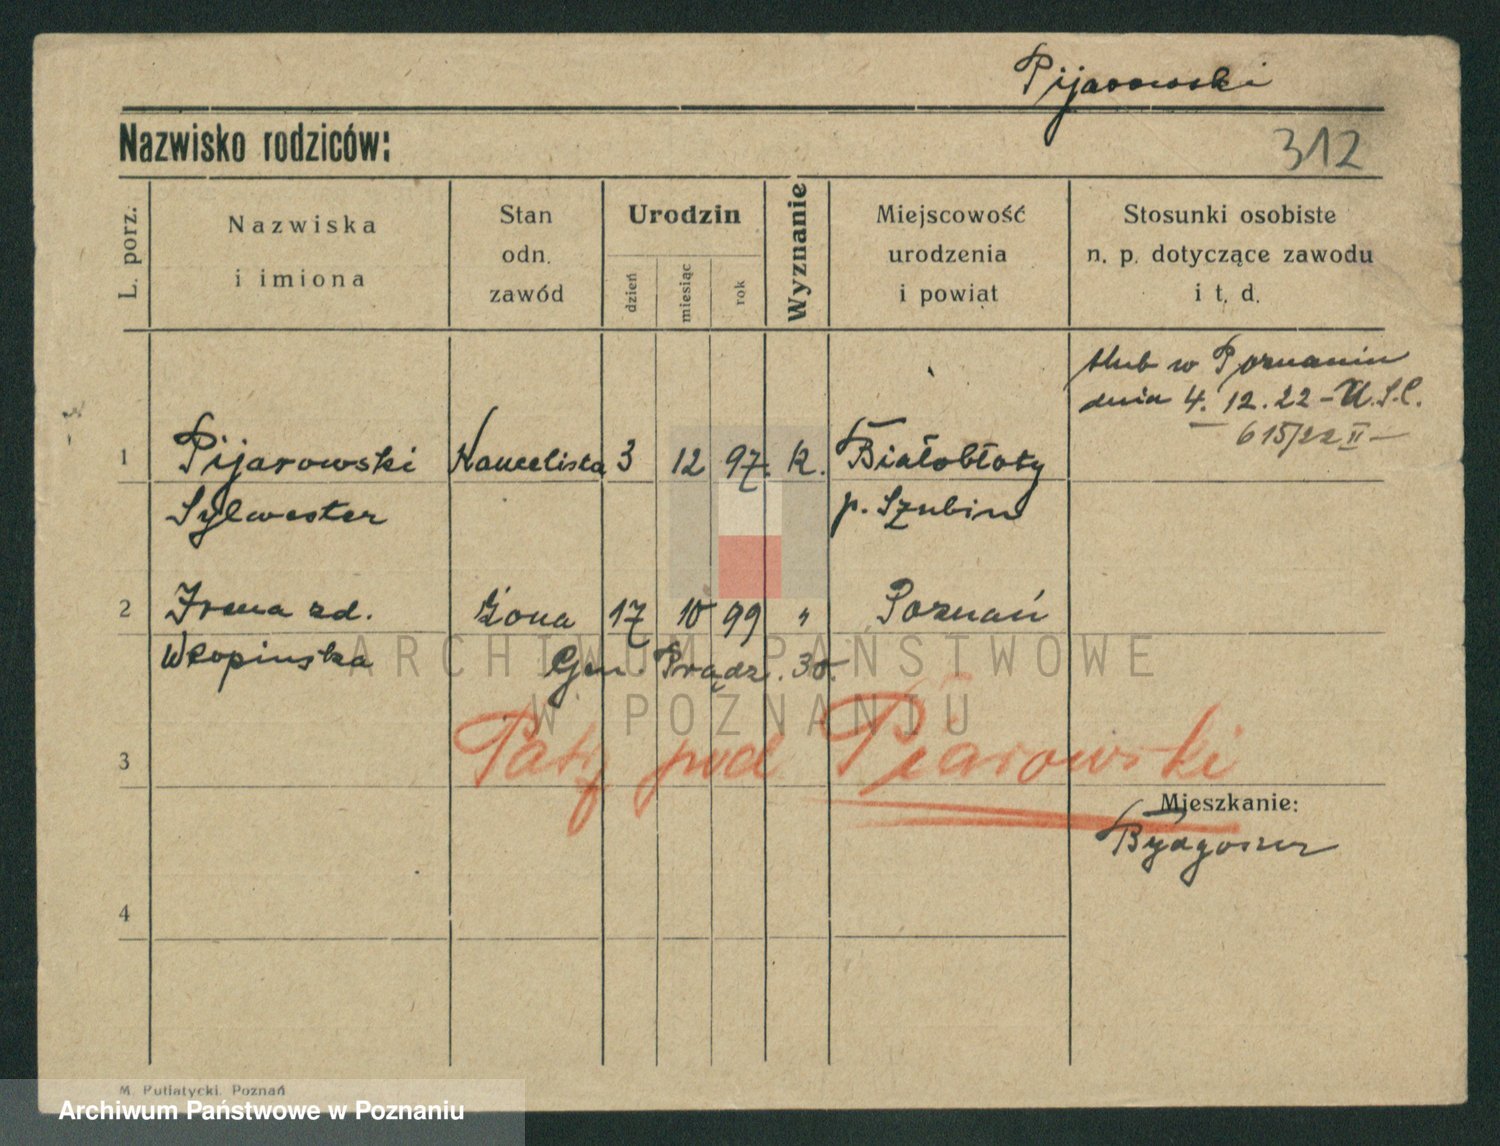 Pijarowski
Nazwisko rodziców:
312
L. porz.
Nazwiska
i imiona
Stan
odn.
zawód
Urodzin
dzień
miesiąc
rok
Wyznanie
Miejscowość
urodzenia
i powiat
Stosunki osobiste
n. p. dotyczące zawodu
i t. d.
ślub w Poznaniu
dnia 4. 12. 22 - U.S.C.
615/22 II
1 Pijarowski Kancelista 3 12 97. k. Białobłoty
Sylwester p. Szubin
2 Irena zd. żona 17 10 99 " Poznań
Gen. Prądz. 30.
ARCHIWUM PAŃSTWOWE
W POZNANIU
3 Patrz pod Piarowski
Mieszkanie:
Bydgoszcz
4
M. Putiatycki. Poznań
Archiwum Państwowe w Poznaniu